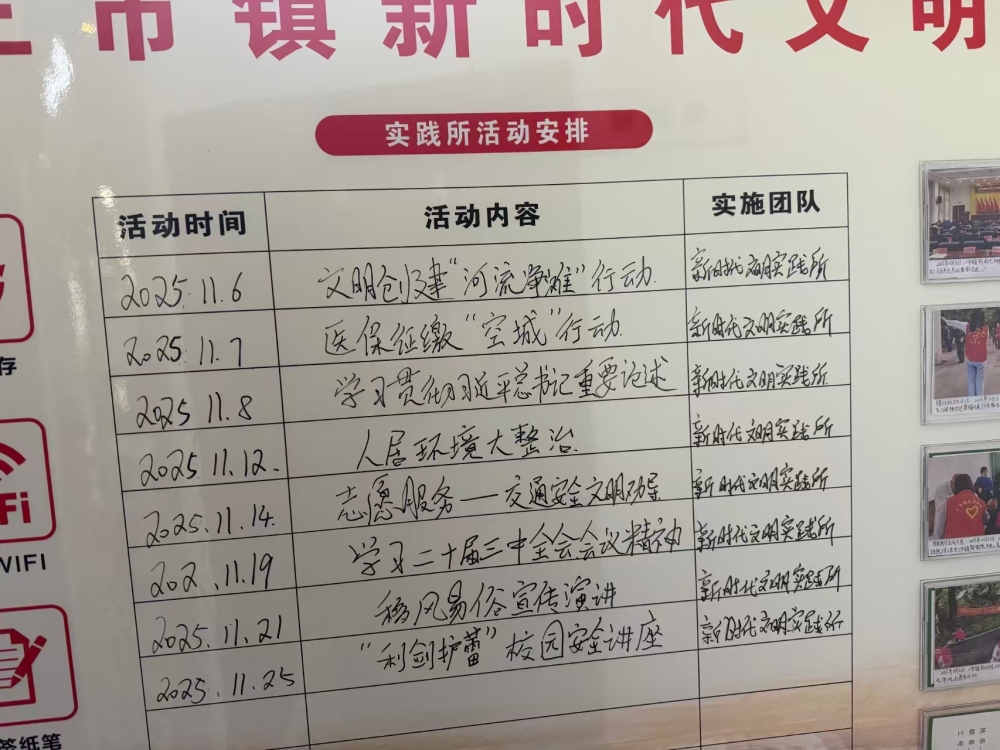 市镇新时代文明
实践所活动安排
活动时间 活动内容 实施团队
2025.11.6 文明创建“河流净滩”行动 新时代文明实践所
2025.11.7 医保征缴“空城”行动 新时代文明实践所
2025 11.8 学习贯彻习近平总书记重要论述 新时代文明实践所
2025.11.12. 人居环境大整治 新时代文明实践所
2025.11.14. 志愿服务——交通安全文明劝导 新时代文明实践所
202.11.19 学习二十届三中全会会议精神 新时代文明实践所
2025.11.21 移风易俗宣传演讲 新时代文明实践所
2025.11.25 “利剑护蕾”校园安全讲座 新时代文明实践所
存
Fi
WIFI
签纸笔